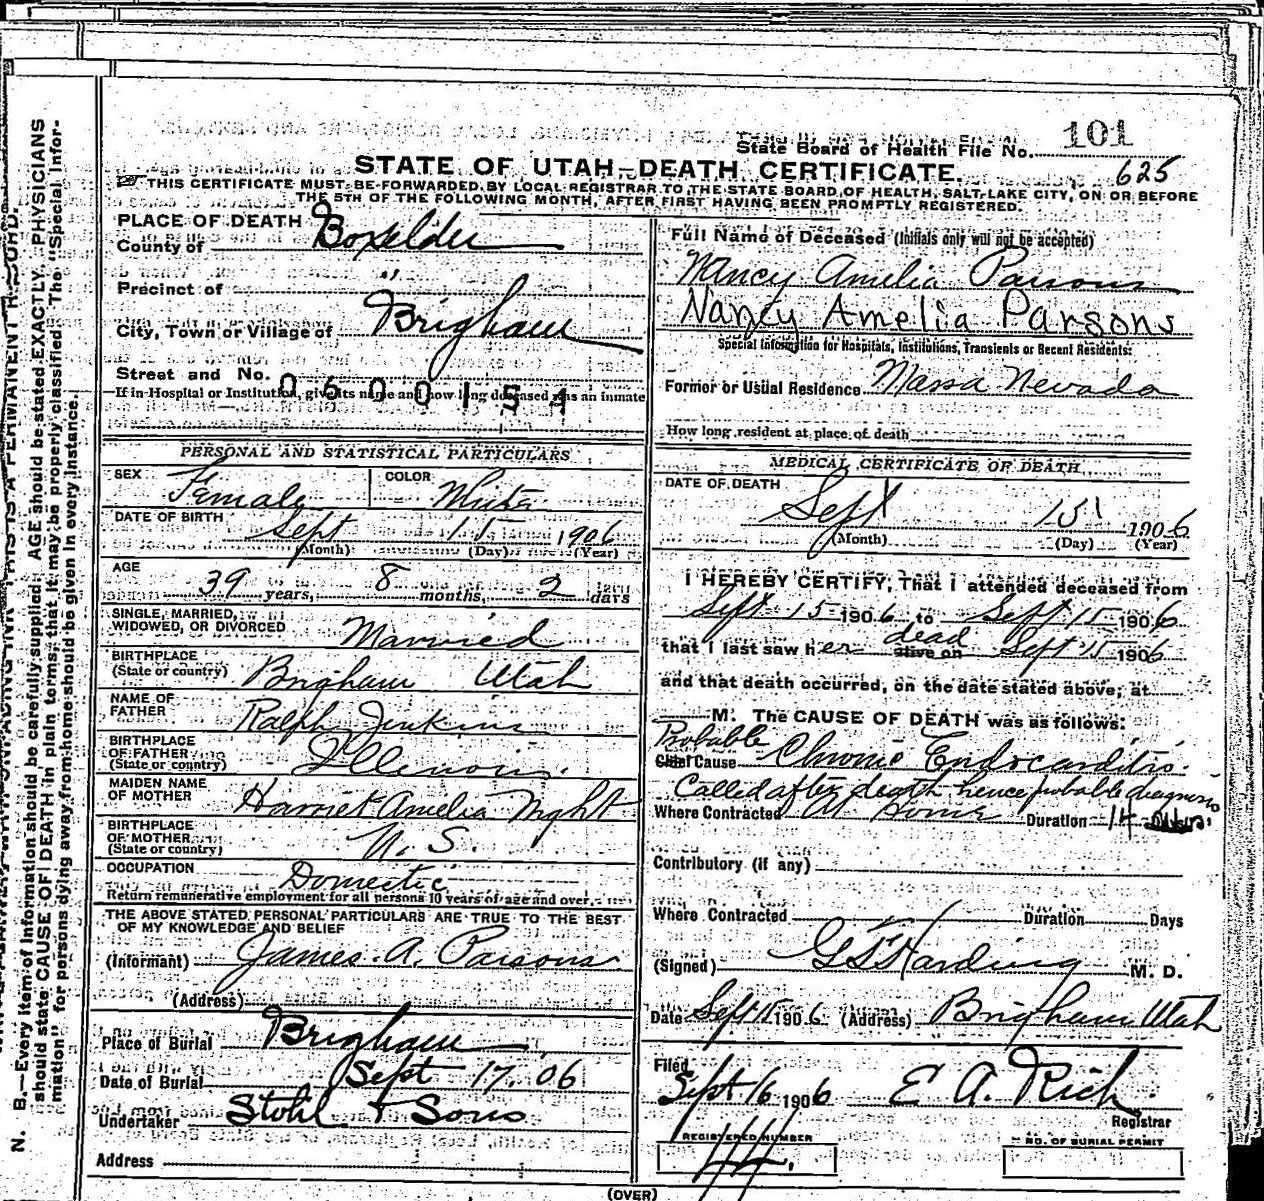 State Board of Health File No. 101
625
STATE OF UTAH—DEATH CERTIFICATE.
THIS CERTIFICATE MUST BE FORWARDED BY LOCAL REGISTRAR TO THE STATE BOARD OF HEALTH, SALT LAKE CITY, ON OR BEFORE
THE 5TH OF THE FOLLOWING MONTH, AFTER FIRST HAVING BEEN PROMPTLY REGISTERED.
PLACE OF DEATH
County of Boxelder
Precinct of "
City, Town or Village of Brigham
Street and No.
0600154
If in Hospital or Institution, give its name and how long deceased was an inmate
PERSONAL AND STATISTICAL PARTICULARS
SEX Female COLOR White
DATE OF BIRTH Sept 15 1906
(Month) (Day) (Year)
AGE 39 years, 8 months, 2 days
SINGLE, MARRIED,
WIDOWED, OR DIVORCED Married
BIRTHPLACE
(State or country) Brigham Utah
NAME OF
FATHER Ralph Jenkins
BIRTHPLACE
OF FATHER
(State or country) Illinois.
MAIDEN NAME
OF MOTHER Harriet Amelia Night
BIRTHPLACE
OF MOTHER
(State or country) U. S.
OCCUPATION Domestic
Return remunerative employment for all persons 10 years of age and over.
THE ABOVE STATED PERSONAL PARTICULARS ARE TRUE TO THE BEST
OF MY KNOWLEDGE AND BELIEF
(Informant) James. A. Parsons
(Address)
Place of Burial Brigham
Date of Burial Sept 17. 06
Undertaker Stohl & Sons
Address
Full Name of Deceased (Initials only will not be accepted)
Nancy Amelia Parsons
Nancy Amelia Parsons
Special Information for Hospitals, Institutions, Transients or Recent Residents:
Former or Usual Residence Massa Nevada
How long resident at place of death
MEDICAL CERTIFICATE OF DEATH
DATE OF DEATH
Sept 15 1906
(Month) (Day) (Year)
I HEREBY CERTIFY, That I attended deceased from
Sept 15 1906 to Sept 15 1906
dead
that I last saw her alive on Sept 15 1906
and that death occurred, on the date stated above, at
M. The CAUSE OF DEATH was as follows:
Probable
Chief Cause Chronic Endocarditis.
Called after death hence probable diagnosis
Where Contracted At Home Duration 14
Contributory (if any)
Where Contracted Duration Days
(Signed) Harding M. D.
Date Sept 15 1906 (Address) Brigham Utah
Filed
Sept 16 1906 E A. Rich.
Registrar
REGISTERED NUMBER
44.
NO. OF BURIAL PERMIT
(OVER)
N. B.—Every item of information should be carefully supplied. AGE should be stated EXACTLY. PHYSICIANS
should state CAUSE OF DEATH in plain terms, that it may be properly classified. The "Special Infor-
mation" for persons dying away from home should be given in every instance.
THIS IS A PERMANENT RECORD.